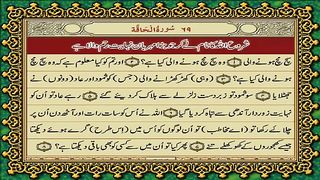 ٦٩ سُورَةُ الْحَاقَّة
شروع اللہ کا نام لے کر جو بڑا مہربان نہایت رحم والا ہے
سچ مچ ہونے والی وہ سچ مچ ہونے والی کیا ہے؟ اور تم کو کیا معلوم ہے کہ وہ سچ مچ
ہونے والی کیا ہے؟ (وہی) کھڑکھڑانے والی (جس) کو ثمود اور عاد (دونوں) نے
جھٹلایا سو ثمود تو زبردست زلزلے سے ہلاک کر دیئے گئے رہے عاد تو اُن کو
نہایت زور دار آندھی سے تباہ کر دیا گیا اللہ نے اُس کو سات رات اور آٹھ دن اُن پر
چلائے رکھا تو (اے مخاطب) تو اُن لوگوں کو اُس میں (اِس طرح) مرے ہوئے دیکھتا
جیسے کھجوروں کے کھوکھلے تنے پھر کیا تو اُن میں سے کسی کو بھی باقی دیکھتا ہے؟